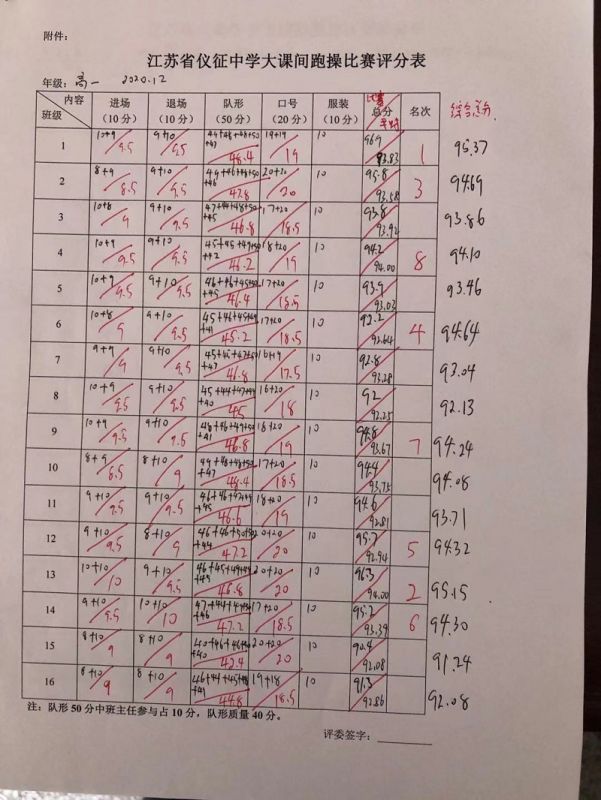 附件：
江苏省仪征中学大课间跑操比赛评分表
年级：高一 2020.12
内容 班级 进场（10分） 退场（10分） 队形（50分） 口号（20分） 服装（10分） 比赛 总分 平时 名次 综合总分
1 10+9 9.5 9+10 9.5 48.4 19+19 19 10 96.9 93.83 1 95.37
2 8+9 8.5 9+10 9.5 47.8 20+20 20 10 95.8 93.58 3 94.69
3 10+8 9 9+10 9.5 46.8 17+20 18.5 10 93.8 93.92 93.86
4 10+9 9.5 9+10 9.5 46.2 18+20 19 10 94.2 94.00 8 94.10
5 10+9 9.5 9+10 9.5 46.4 17+20 18.5 10 93.9 93.02 93.46
6 10+8 9 9+10 9.5 45.2 17+20 18.5 10 92.64 4 94.64
7 9+9 9 9+10 9.5 46.8 16+19 17.5 10 92.8 93.28 93.04
8 10+9 9.5 9+10 9.5 45 16+20 18 10 92 92.25 92.13
9 10+9 9.5 9+10 9.5 46.8 18+20 19 10 94.8 93.67 7 94.24
10 8+9 8.5 8+10 9 48.4 17+20 18.5 10 94.4 93.75 94.08
11 9+10 9.5 9+10 9.5 46.6 18+20 19 10 94.6 92.81 93.71
12 9+10 9.5 8+10 9 47.2 20+20 20 10 95.7 92.94 5 94.32
13 10+10 10 9+10 9.5 46.8 20+20 20 10 96.3 94.00 2 95.15
14 9+10 9.5 10+10 10 47.2 17+20 18.5 10 95.2 93.39 6 94.30
15 8+10 9 8+10 9 42.4 20+20 20 10 90.4 92.08 91.24
16 8+10 9 8+10 9 44.8 19+18 18.5 10 91.3 92.86 92.08
注：队形50分中班主任参与占10分，队形质量40分。
评委签字：